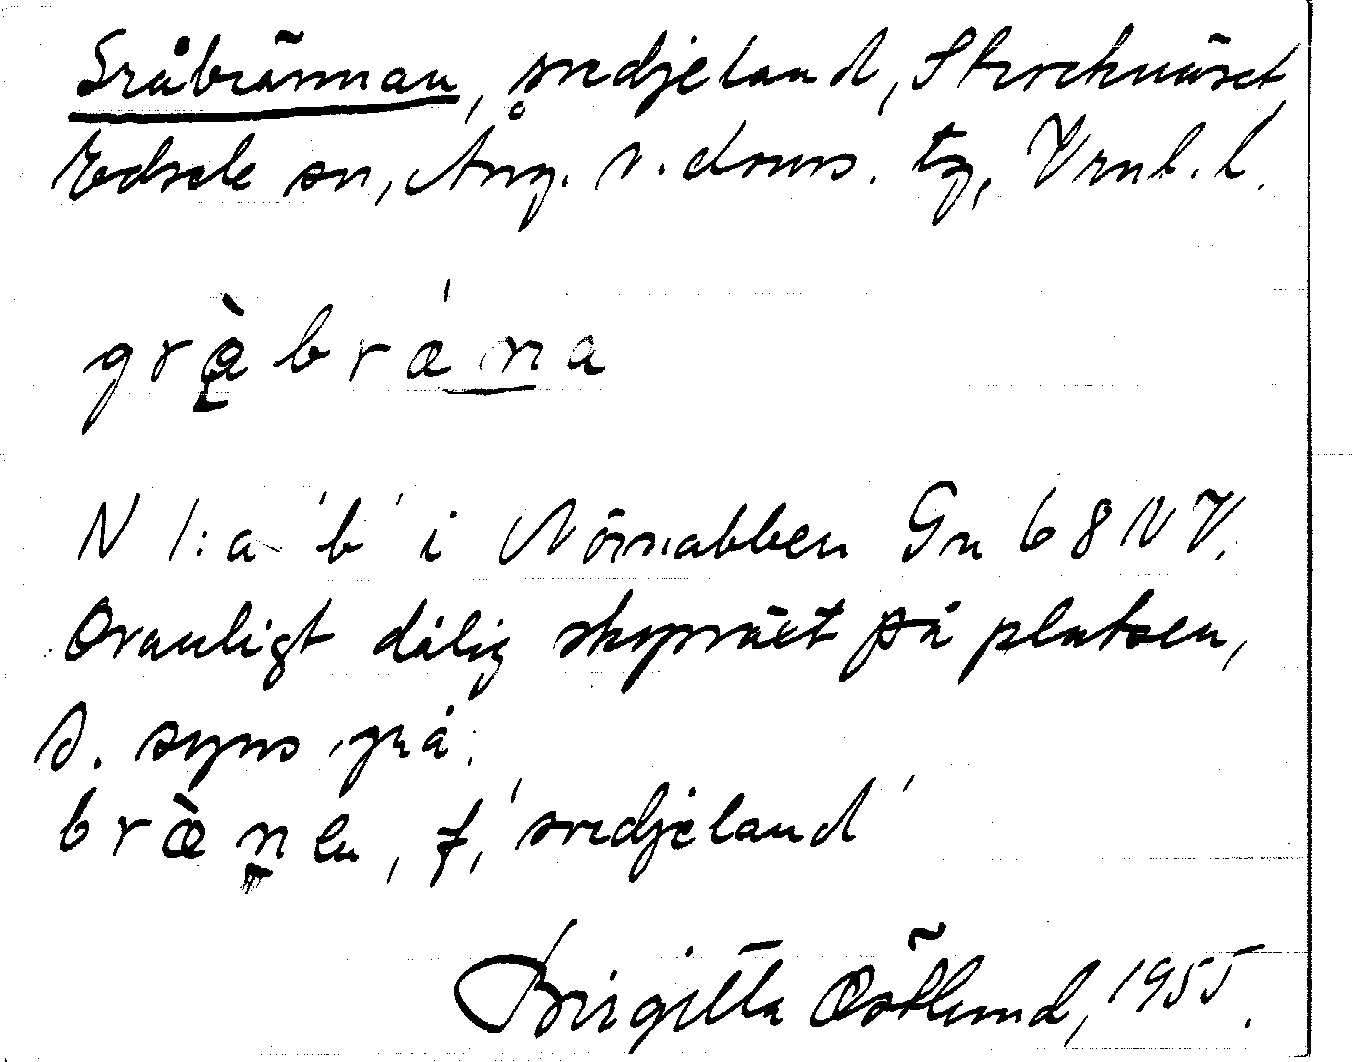 Gråbrännan, svedjeland, Storknäset
Edsele sn, Ång. v. doms. tg, Vrnl. l.
gràbrǽna
N 1:a 'b' i Nörnabben Gn 68 NV.
Ovanligt dålig skogsväxt på platsen,
d. syns grå.
brænen, f, 'svedjeland'
Birgitta Östlund, 1955.